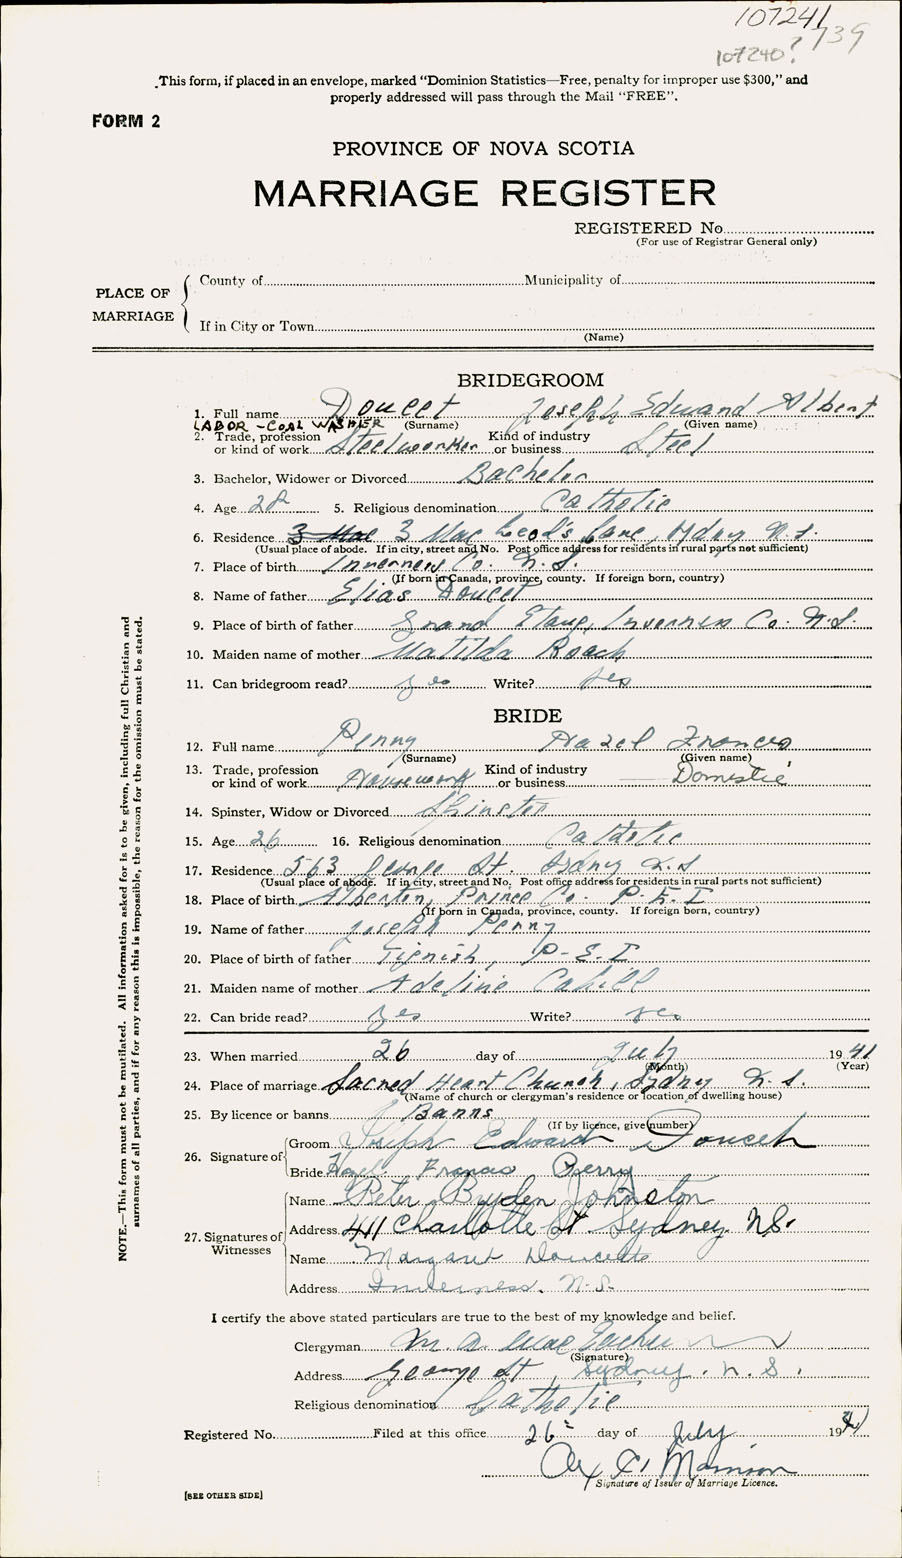 107241
107240? 739
This form, if placed in an envelope, marked "Dominion Statistics—Free, penalty for improper use $300," and
properly addressed will pass through the Mail "FREE".
FORM 2
PROVINCE OF NOVA SCOTIA
MARRIAGE REGISTER
REGISTERED No.
(For use of Registrar General only)
PLACE OF MARRIAGE
County of Municipality of
If in City or Town
(Name)
BRIDEGROOM
1. Full name Doucet Joseph Edward Albert
(Surname) (Given name)
LABOR - COAL WASHER
2. Trade, profession or kind of work Steelworker Kind of industry or business Steel
3. Bachelor, Widower or Divorced Bachelor
4. Age 28 5. Religious denomination Catholic
6. Residence 3 Mac 3 Mac Leod's Lane, Sydney N.S.
(Usual place of abode. If in city, street and No. Post office address for residents in rural parts not sufficient)
7. Place of birth Inverness Co. N.S.
(If born in Canada, province, county. If foreign born, country)
8. Name of father Elias Doucet
9. Place of birth of father Grand Etang, Inverness Co. N.S.
10. Maiden name of mother Matilda Roach
11. Can bridegroom read? yes Write? yes
BRIDE
12. Full name Penny Hazel Frances
(Surname) (Given name)
13. Trade, profession or kind of work Housework Kind of industry or business Domestic
14. Spinster, Widow or Divorced Spinster
15. Age 26 16. Religious denomination Catholic
17. Residence 563 George St. Sydney N.S
(Usual place of abode. If in city, street and No. Post office address for residents in rural parts not sufficient)
18. Place of birth Alberton, Prince Co. P.E.I
(If born in Canada, province, county. If foreign born, country)
19. Name of father Joseph Penny
20. Place of birth of father Tignish, P-E-I
21. Maiden name of mother Adeline Cahill
22. Can bride read? yes Write? yes
23. When married 26 day of July 1941
(Month) (Year)
24. Place of marriage Sacred Heart Church, Sydney N.S.
(Name of church or clergyman's residence or location of dwelling house)
25. By licence or banns Banns
(If by licence, give number)
26. Signature of
Groom Joseph Edward Doucet
Bride Hazel Francis Perry
27. Signatures of Witnesses
Name Peter Bryden Johnston
Address 411 Charlotte St Sydney N.S.
Name Margaret Doucette
Address Inverness, N.S.
I certify the above stated particulars are true to the best of my knowledge and belief.
Clergyman M. A. MacEachern
(Signature)
Address George St, Sydney, N.S.
Religious denomination Catholic
Registered No. Filed at this office 26 day of July 1941
Signature of Issuer of Marriage Licence.
[SEE OTHER SIDE]
NOTE.—This form must not be mutilated. All information asked for is to be given, including full Christian and
surnames of all parties, and if for any reason this is impossible, the reason for the omission must be stated.